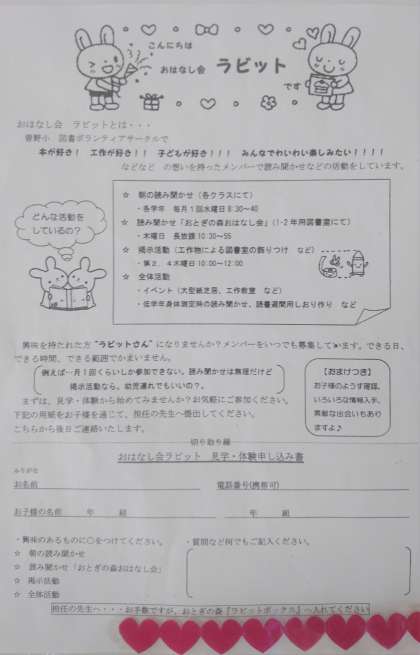 こんにちは
おはなし会 ラビット です
おはなし会 ラビットとは・・・
菅野小 図書ボランティアサークルで
本が好き! 工作が好き!! 子どもが好き!!! みんなでわいわい楽しみたい!!!!
などなど の想いを持ったメンバーで読み聞かせなどの活動をしています。
どんな活動を
しているの?
☆ 朝の読み聞かせ(各クラスにて)
・各学年 毎月1回水曜日8:30~40
☆ 読み聞かせ「おとぎの森おはなし会」(1・2年用図書室にて)
・木曜日 長放課10:30~55
☆ 掲示活動(工作物による図書室の飾りつけ など)
・第2、4木曜日10:00~12:00
☆ 全体活動
・イベント(大型紙芝居、工作教室 など)
・低学年身体測定時の読み聞かせ、読書週間用しおり作り など
興味を持たれた方"ラビットさん"になりませんか?メンバーをいつでも募集しています。できる日、
できる時間、できる範囲でかまいません。
例えば一月1回くらいしか参加できない。読み聞かせは無理だけど
掲示活動なら、幼児連れでもいいの?。
まずは、見学・体験から始めてみませんか?お気軽にご参加ください。
下記の用紙をお子様を通じて、担任の先生へ提出してください。
こちらから後日ご連絡いたします。
【おまけつき】
お子様のようす確認、
いろいろな情報入手、
素敵な出会いもあり
ますよ♪
切り取り線
おはなし会ラビット 見学・体験申し込み書
ふりがな
お名前 電話番号(携帯可)
お子様の名前 年 組 年 組
・興味のあるものに○をつけてください。 ・質問など何でもご記入ください。
☆ 朝の読み聞かせ
☆ 読み聞かせ「おとぎの森おはなし会」
☆ 掲示活動
☆ 全体活動
担任の先生へ・・・お手数ですが、おとぎの森『ラビットボックス』へ入れてください